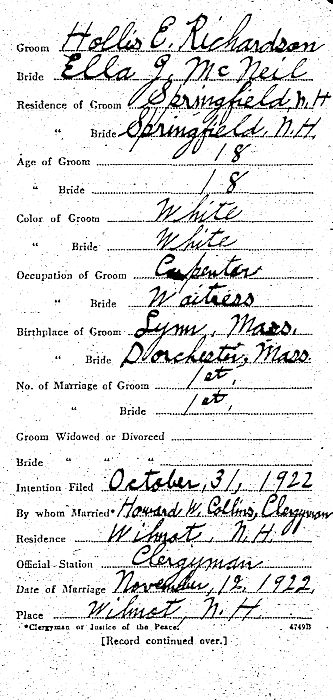 Groom Hollis E. Richardson
Bride Ella G. McNeil
Residence of Groom Springfield, N.H
" Bride Springfield, N.H.
Age of Groom 18
" Bride 18
Color of Groom White
" Bride White
Occupation of Groom Carpenter
" Bride Waitress
Birthplace of Groom Lynn, Mass.
" Bride Dorchester, Mass.
No. of Marriage of Groom 1st,
" Bride 1st,
Groom Widowed or Divorced
Bride " " "
Intention Filed October, 31, 1922
By whom Married* Howard W. Collins, Clergyman
Residence Wilmot, N.H.
Official Station Clergyman
Date of Marriage November, 12, 1922,
Place Wilmot, N.H.
*Clergyman or Justice of the Peace. 4749B
[Record continued over.]